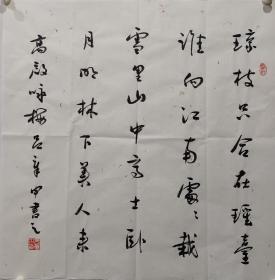 琼枝只合在瑶臺
谁向江南處〻栽
雪里山中高士卧
月明林下美人来
高启咏梅